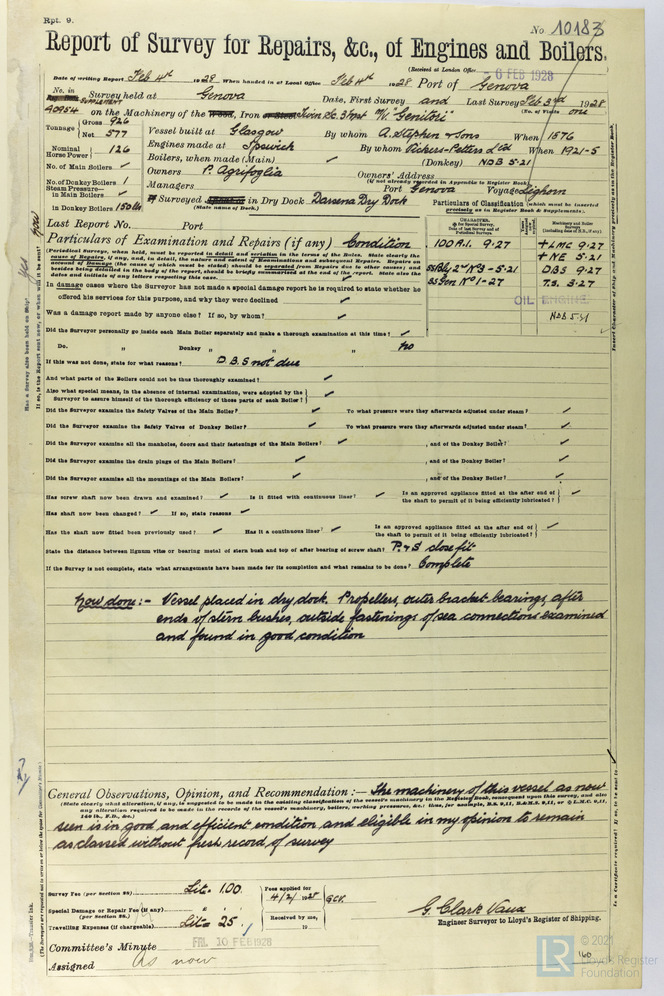 Rpt. 9.
No 10183
Report of Survey for Repairs, &c., of Engines and Boilers.
(Received at London Office 6 FEB 1928
Date of writing Report Feb 4th 1928 When handed in at Local Office Feb 4th 1928 Port of Genova
No. in Survey held at Genova Date, First Survey and Last Survey Feb 3rd 1928
SUPPLEMENT
40954 on the Machinery of the Wood, Iron or Steel Twin Sc. 3 Mst "Genitori" (No. of Visits one
Tonnage Gross 926
Net 577
Vessel built at Glasgow By whom A. Stephen & Sons When 1876
Nominal Horse Power 126
Engines made at Ipswich By whom Vickers-Petters Ltd When 1921-5
No. of Main Boilers ✓ Boilers, when made (Main) ✓ (Donkey) NDB 5-21
No. of Donkey Boilers 1 Owners P. Agrifoglia Owners' Address
(if not already recorded in Appendix to Register Book.)
Steam Pressure—
in Main Boilers ✓ Managers Port Genova Voyage Lighorn
in Donkey Boilers 150 lbs If Surveyed Afloat or in Dry Dock Darsena Dry Dock
(State name of Dock.)
Particulars of Classification (which must be inserted precisely as in Register Book & Supplements).
Last Report No. Port
Particulars of Examination and Repairs (if any) Condition
CHARACTER.
100 A.1. 9-27
SS Bly 2nd No 3-5-21
SS Gen No 1-27
Machinery and Boiler Surveys
+ LMC 9-27
+ NE 5-21
DBS 9-27
T.S. 3-27
OIL ENGINE
NDB 5-21
(Periodical Surveys, when held, must be reported in detail and seriatim in the terms of the Rules. State clearly the
cause of Repairs, if any, and, in detail, the nature and extent of Examinations and subsequent Repairs. Repairs on
account of Damage (the cause of which must be stated) should be separated from Repairs due to other causes; and
besides being detailed in the body of the report, should be briefly summarised at the end of the report. State also the
dates and initials of any letters respecting this case.
In damage cases where the Surveyor has not made a special damage report he is required to state whether he
offered his services for this purpose, and why they were declined ✓
Was a damage report made by anyone else? If so, by whom? ✓
Did the Surveyor personally go inside each Main Boiler separately and make a thorough examination at this time? ✓
Do. " Donkey " " " " no
If this was not done, state for what reasons? D.B.S not due
And what parts of the Boilers could not be thus thoroughly examined? ✓
Also what special means, in the absence of internal examination, were adopted by the
Surveyor to assure himself of the thorough efficiency of those parts of each Boiler? ✓
Did the Surveyor examine the Safety Valves of the Main Boiler? ✓ To what pressure were they afterwards adjusted under steam? ✓
Did the Surveyor examine the Safety Valves of Donkey Boiler? ✓ To what pressure were they afterwards adjusted under steam? ✓
Did the Surveyor examine all the manholes, doors and their fastenings of the Main Boilers? ✓ , and of the Donkey Boiler? ✓
Did the Surveyor examine the drain plugs of the Main Boilers? ✓ , and of the Donkey Boiler? ✓
Did the Surveyor examine all the mountings of the Main Boilers? ✓ , and of the Donkey Boiler? ✓
Has screw shaft now been drawn and examined? ✓ Is it fitted with continuous liner? ✓ Is an approved appliance fitted at the after end of
the shaft to permit of it being efficiently lubricated? ✓
Has shaft now been changed? ✓ If so, state reasons ✓
Has the shaft now fitted been previously used? ✓ Has it a continuous liner? ✓ Is an approved appliance fitted at the after end of
the shaft to permit of it being efficiently lubricated? ✓
State the distance between lignum vitæ or bearing metal of stern bush and top of after bearing of screw shaft? P. & S close fit
If the Survey is not complete, state what arrangements have been made for its completion and what remains to be done? Complete
Now done:- Vessel placed in dry dock. Propellers, outer bracket bearings, after
ends of stern bushes, outside fastenings of sea connections examined
and found in good condition
General Observations, Opinion, and Recommendation:— The machinery of this vessel as now
(State clearly what alteration, if any, is suggested to be made in the existing classification of the vessel's machinery in the Register Book, consequent upon this survey, and also
any alteration required to be made in the records of the vessel's machinery, boilers, working pressures, &c.; thus, for example, B.S. 9,11, B.&M.S. 9,11, or L.M.C. 9,11,
140 lb., F.D., &c.)
seen is in good and efficient condition and eligible in my opinion to remain
as classed without fresh record of survey
Survey Fee (per Section 28) Lit= 100. Fees applied for
4/2/1928 GCV.
Special Damage or Repair Fee (if any)
(per Section 28.)
Travelling Expenses (if chargeable) Lit= 25. Received by me,
19
G. Clark Vaux
Engineer Surveyor to Lloyd's Register of Shipping.
Committee's Minute FRI. 10 FEB 1928
Assigned As now
160
© 2021
Lloyd's Register
Foundation
LR